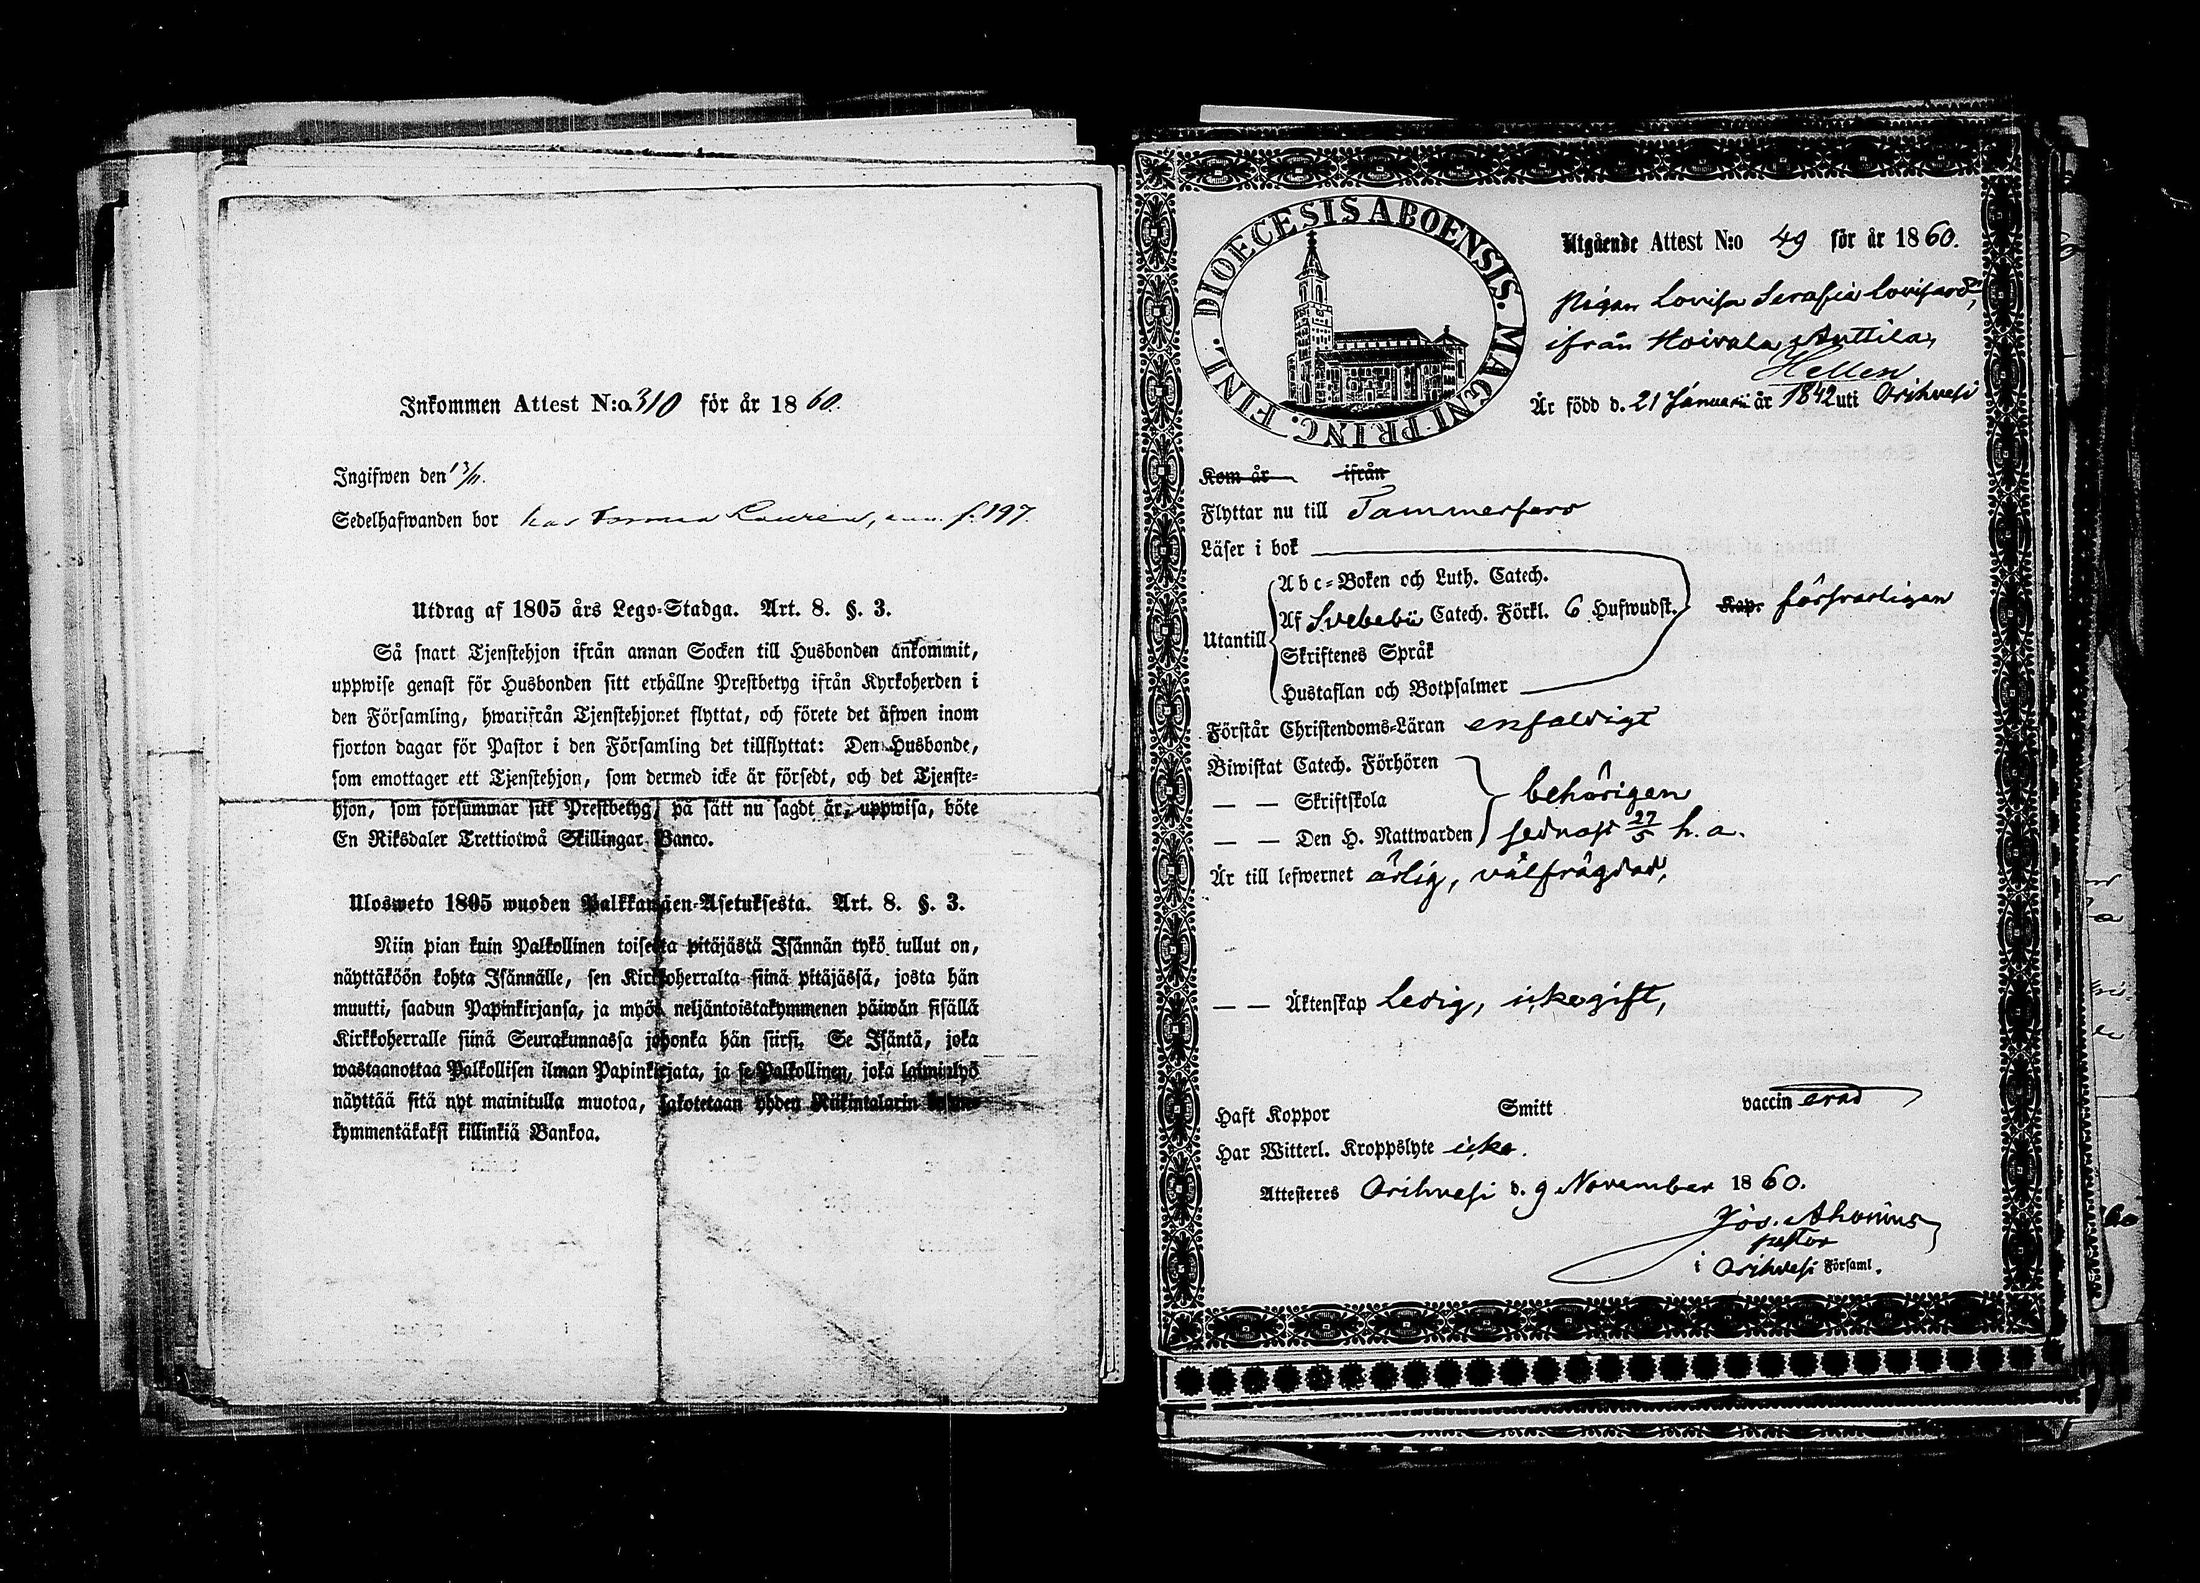 Inkommen Attest N:o 310 för år 1860.
Ingifwen den 13/11.
Sedelhafwanden bor hos f. 197.
Utdrag af 1805 års Lego-Stadga. Art. 8. §. 3.
Så snart Tjenstehjon ifrån annan Socken till Husbonden ankommit,
uppwise genast för Husbonden sitt erhållne Prestbetyg ifrån Kyrkoherden i
den Församling, hwarifrån Tjenstehjonet flyttat, och förete det äfwen inom
fjorton dagar för Pastor i den Församling det tillflyttat: Den Husbonde,
som emottager ett Tjenstehjon, som dermed icke är försedt, och det Tjenste-
hjon, som försummar sitt Prestbetyg, på sätt nu sagdt är, uppwisa, böte
En Riksdaler Trettiotwå Skillingar Banco.
Ulosweto 1805 wuoden Palkkawäen-Asetuksesta. Art. 8. §. 3.
Niin pian kuin Palkollinen toisesta pitäjästä Isännän tykö tullut on,
näyttäköön kohta Isännälle, sen Kirkkoherralta siinä pitäjässä, josta hän
muutti, saadun Papinkirjansa, ja myös neljäntoistakymmenen päiwän sisällä
Kirkkoherralle siinä Seurakunnassa johonka hän siirsi. Se Isäntä, joka
wastaanottaa Palkollisen ilman Papinkirjata, ja se Palkollinen, joka laiminlyö
näyttää sitä nyt mainitulla muotoa, sakotetaan yhden Riikintalarin
kymmentäkaksi killinkiä Bankoa.
DIOECESIS ABOENSIS. MAGNI PRINC. FINL.
Utgående Attest N:o 49 för år 1860.
Pigan Lovisa Serafia Lovisasdr,
ifrån Hoivala Anttila,
Hellen
Är född d. 21 Januarii år 1842 uti Orihvesi
Kom år ifrån
Flyttar nu till Tammerfors
Läser i bok
Abc-Boken och Luth. Catech.
Utantill Af Svebelii Catech. Förkl. 6 Hufwudst. Kap. försvarligen
Skriftenes Språk
Hustaflan och Botpsalmer
Förstår Christendoms-Läran enfaldigt
Biwistat Catech. Förhören
— — Skriftskola behörigen
— — Den H. Nattwarden sednast 27/5 h. a.
Är till lefwernet ärlig, välfrägdad,
— — Äktenskap Ledig, icke gift,
Haft Koppor Smitt vaccinerad
Har Witterl. Kroppslyte icke.
Attesteres Orihvesi d. 9 November 1860.
Jos. Ahonius
pastor
i Orihvesi Församl.